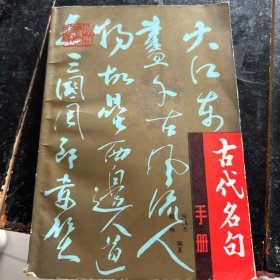 大江东
尽千古风流人
物故垒西边人道
三国周郎赤壁
古代名句
手册
编著